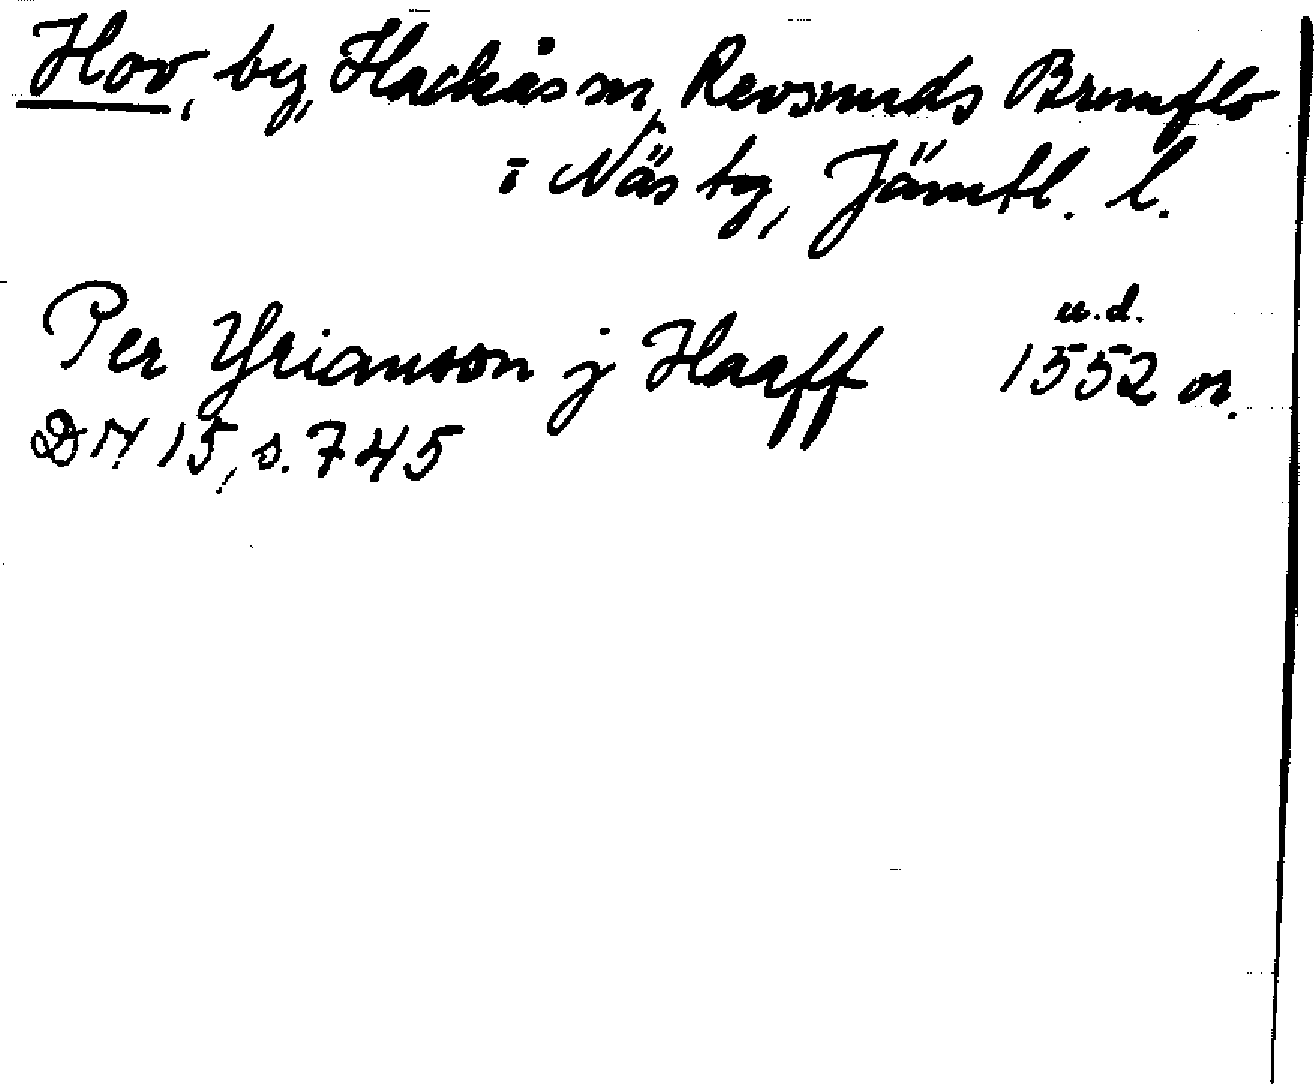 Hov, by, Hackås sn, Revsunds Brunflo
i Näs tg, Jämtl. l.
u.d.
Per Yrianson j Haaff 1552 or.
DN 15, s. 745